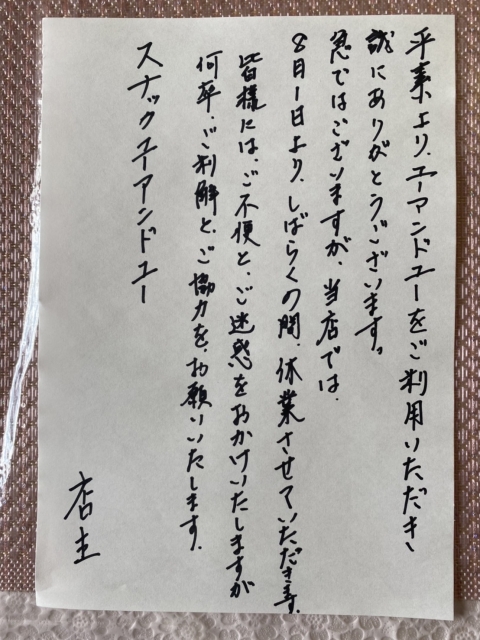 平素より、ユーアンドユーをご利用いただき
誠にありがとうございます。
急ではございますが、当店では、
8月1日より、しばらくの間、休業させていただきます。
皆様には、ご不便と、ご迷惑をおかけいたしますが
何卒、ご理解と、ご協力を、お願いいたします。
スナックユーアンドユー
店主